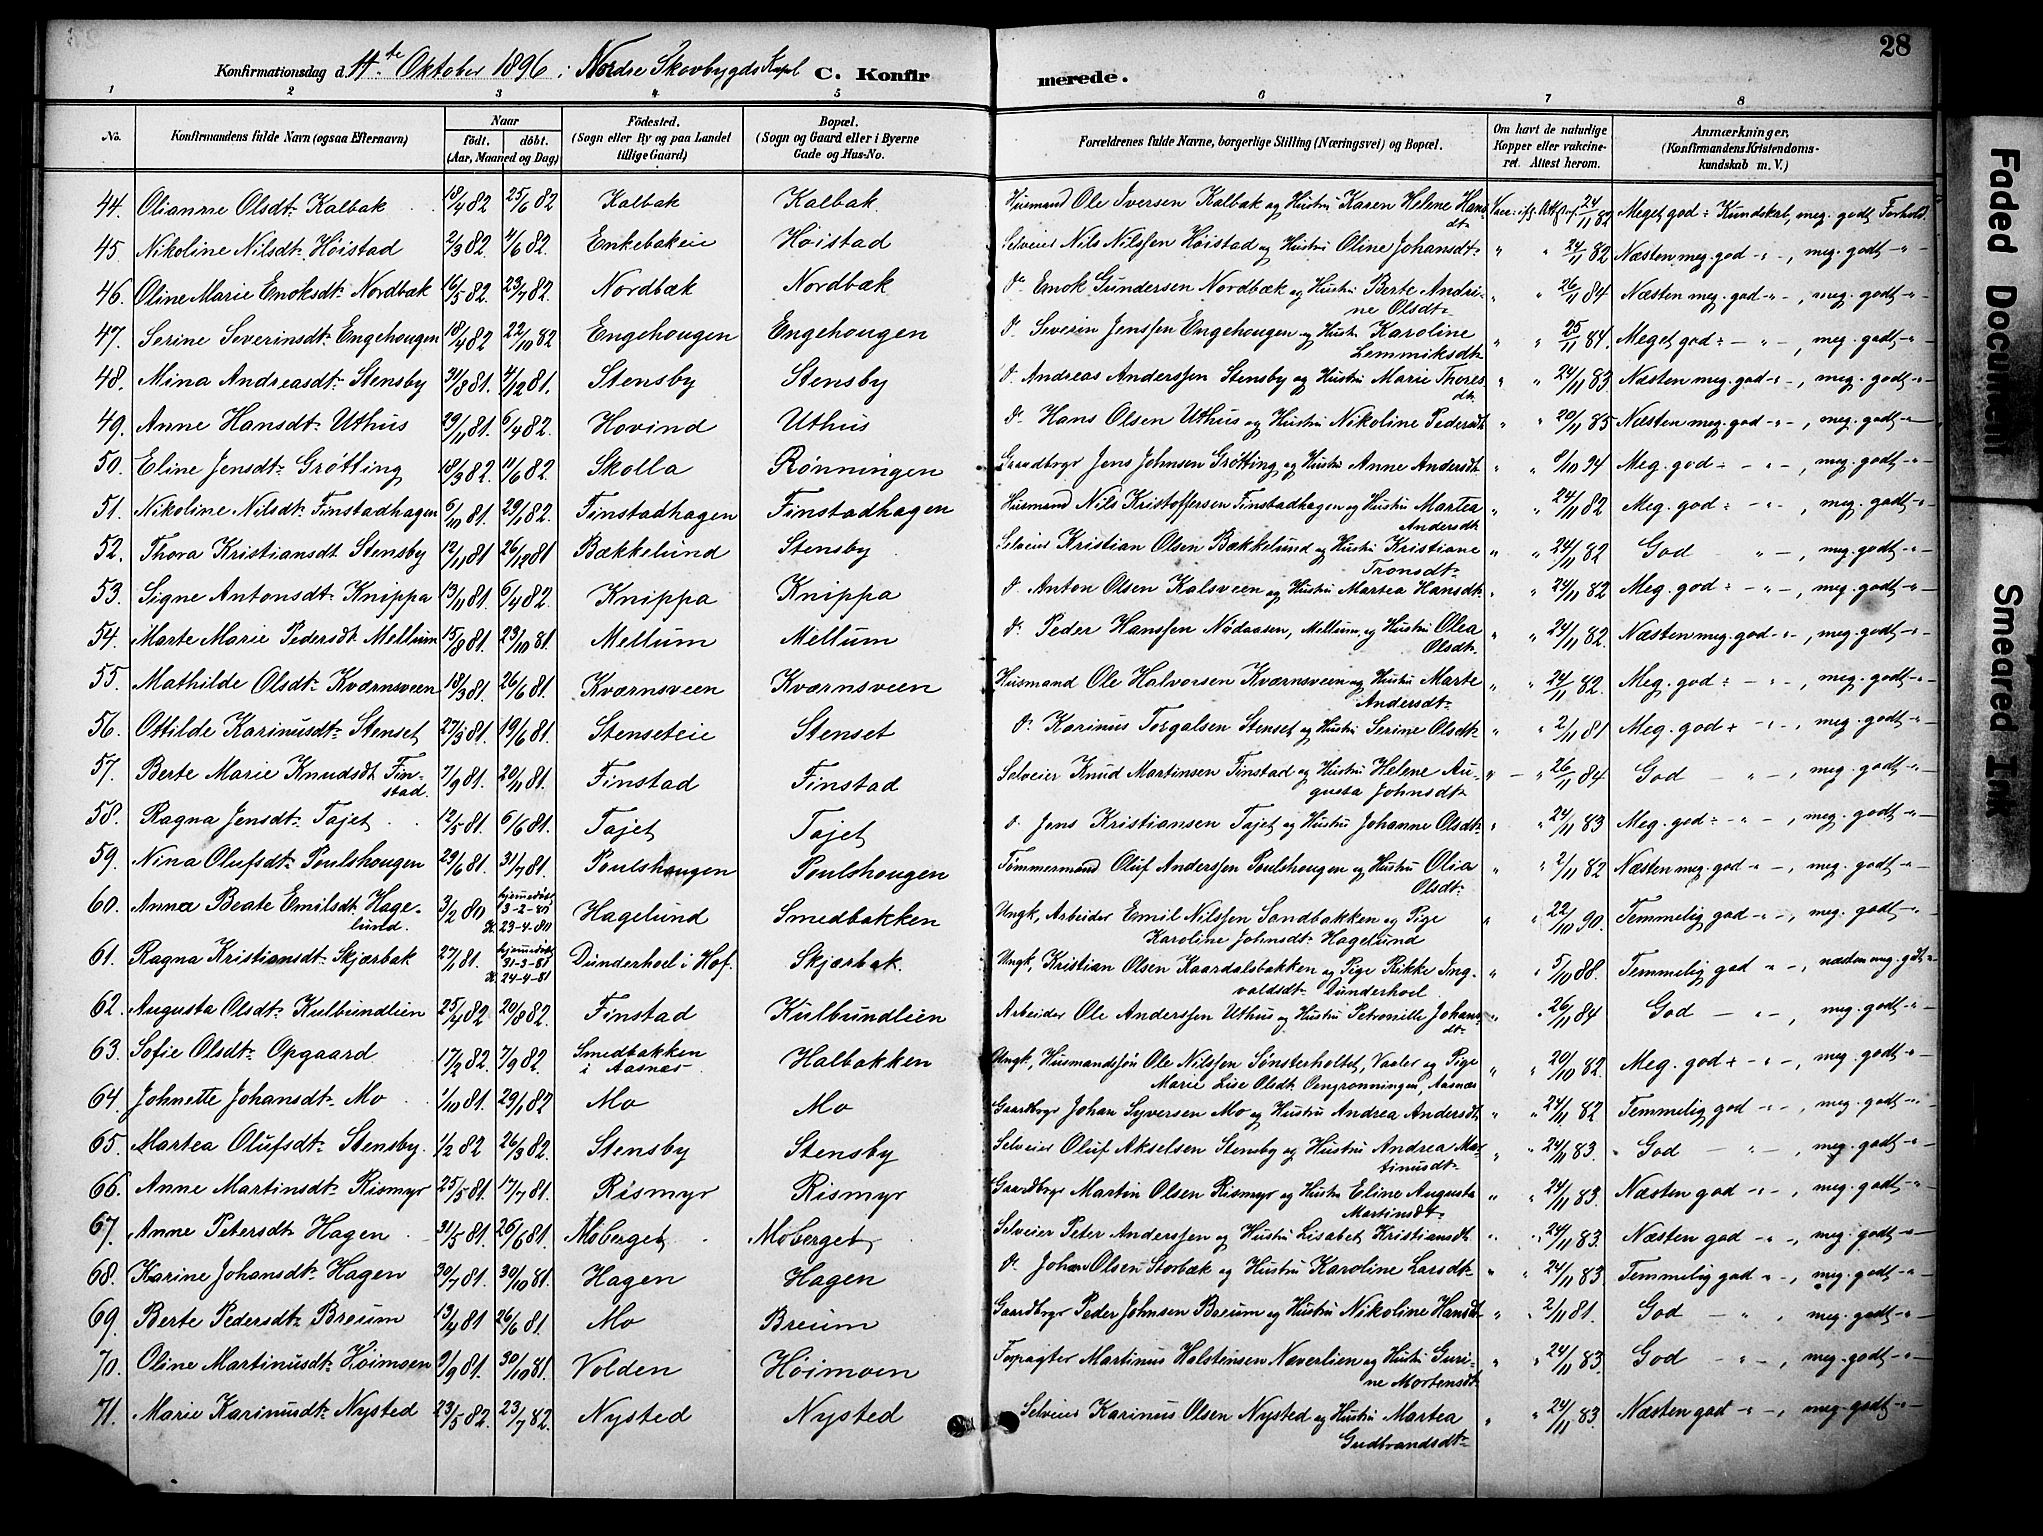 28
Konfirmationsdag d. 4de Oktober 1896 i Nordre Skovbygds Kapl C. Konfirmerede.
1 2 3 4 5 6 7 8
No. Konfirmandens fulde Navn (ogsaa Efternavn) Naar født. døbt. (Aar, Maaned og Dag) Fødested. (Sogn eller By og paa Landet tillige Gaard) Bopæl. (Sogn og Gaard eller i Byerne Gade og Hus-No. Forældrenes fulde Navne, borgerlige Stilling (Næringsvei) og Bopæl. Om havt de naturlige Kopper eller vakcineret. Attest herom. Anmærkninger. (Konfirmandens Kristendomskundskab m. V.)
44. Olianne Olsdt. Kalbak 18/4 82 25/6 82 Kalbak Kalbak Husmand Ole Iversen Kalbak og Hustru Karen Helene Hansdt. Vacc. 24/11 82 Meget god Kundskab, meg. godt Forhold
45 Nikoline Nilsdt. Høistad 2/3 82 4/6 82. Enkebakeie Høistad Selveier Nils Nilssen Høistad og Hustru Oline Johansdt. " " 24/11 82 Næsten meg. god -"-, meg. godt -"-
46. Oline Marie Enoksdt. Nordbæk 16/5 82. 23/7 82. Nordbæk Nordbæk Do Enok Gundersen Nordbæk og Hustru Berte Andrine Olsdt. " " 26/11 84 Næsten meg. god -"-, meg. godt -"-
47. Serine Severinsdt. Engehougen 18/4 82 22/10 82 Engehougen Engehougen Do Severin Jenssen Engehougen og Hustru Karoline Lemmiksdt. " " 25/11 84. Meget god -"-, meg. godt -"-
48. Mina Andreasdt. Stensby 31/8 81. 4/12 81. Stensby Stensby Do Andreas Anderssen Stensby og Hustru Marie Thoresdt. " " 24/11 83 Næsten meg. god -"-, meg. godt -"-
49. Anne Hansdt. Uthus 29/11 81. 6/4 82. Hovind Uthus Do Hans Olsen Uthus og Hustru Nikoline Pedersdt. " " 20/11 85 Næsten meg. god -"-, meg. godt -"-
50. Eline Jensdt. Grøtting 18/3 82 11/6 82. Skolla Rønningen Gaardbrgr Jens Johnsen Grøtting og Hustru Anne Andersdt. " " 8/10 94 Meg. god -"-, meg. godt -"-
51. Nikoline Nilsdt. Finstadhagen 6/10 81. 29/1 82. Finstadhagen Finstadhagen Husmand Nils Kristoffersen Finstadhagen og Hustru Martea Andersdt. " " 24/11 82 Meg. god -"-, meg. godt -"-
52. Thora Kristiansdt Stensby 12/11 81 26/12 81 Bækkelund Stensby Selveier Kristian Olsen Bækkelund og Hustru Kristiane Tronsdt. " " 24/11 82 God -"-, meg. godt -"-
53. Signe Antonsdt. Knippa 13/11 81. 6/4 82. Knippa Knippa Do Anton Olsen Kalsveen og Hustru Martea Hansdt. " " 24/11 82 Meg. god -"-, meg. godt -"-
54. Marte Marie Pedersdt. Mellum 15/8 81. 23/10 81. Mellum Mellum Do Peder Hanssen Nødaasen, Mellum, og Hustru Olea Olsdt. " " 24/11 82. Næsten meg. god -"-, meg. godt -"-
55. Mathilde Olsdt. Kværnsveen 18/3 81. 26/6 81. Kværnsveen Kværnsveen Husmand Ole Halvorsen Kværnsveen og Hustru Marte Andersdt. " " 24/11 82. Meg. god -"-, meg. godt -"-
56. Ottilde Karinusdt. Stenset 27/3 81. 19/6 81. Stenseteie Stenset Do Karinus Torgalsen Stenset og Hustru Serine Olsdt. " " 2/11 81 Meg. god -"-, meg. godt -"-
57. Berte Marie Knudsdt Finstad. 7/9 81. 20/11 81. Finstad Finstad Selveier Knud Martinsen Finstad og Hustru Helene Augusta Johnsdt. " " 26/11 84 God -"-, meg. godt -"-
58. Ragna Jensdt. Tajet 12/5 81. 6/6 81. Tajet Tajet Do Jens Kristiansen Tajet og Hustru Johanne Olsdt. " " 24/11 83 Meg. god -"-, meg. godt -"-
59. Nina Olufsdt. Poulshougen 29/6 81. 31/7 81. Poulshougen Poulshougen Tømmermand Oluf Anderssen Poulshougen og Hustru Olia Olsdt. " " 2/11 82 Næsten meg. god -"-, meg. godt -"-
60. Anna Beate Emilsdt. Hagelund. 3/2 80 hjemmedøbt 3-2-80 K. 23-4-80 Hagelund Smedbakken Ungk. Arbeider Emil Nilssen Sandbakken og Pige Karoline Johnsdt. Hagelund " " 22/10 90. Temmelig god -"-, meg. godt -"-
61. Ragna Kristiansdt. Skjærbak 27/1 81. hjemmedøbt 31-3-81 K. 24-4-81 Dunderhoel i Hof. Skjærbak. Ungk. Kristian Olsen Kaardalsbakken og Pige Rikke Ingvaldsdt. Dunderhoel " " 5/10 88. Temmelig god -"-, næsten meg. godt -"-
62. Augusta Olsdt. Kulbundlien 25/4 82 20/8 82. Finstad Kulbundlien Arbeider Ole Anderssen Uthus og Hustru Petronille Johansdt. " " 26/11 84 God -"-, meg. godt -"-
63. Sofie Olsdt. Opgaard 17/2 82. 7/9 82. Smedbakken i Aasnæs Halbakken Ungk. Husmandssøn Ole Nilssen Sønsterholtet, Vaaler og Pige Marie Lise Olsdt. Oengrønningen, Aasnæs " " 20/10 82. Meg. god -"-, meg. godt -"-
64. Johnette Johansdt. Mo 1/10 81. 29/1 82 Mo Mo Gaardbrgr Johan Syversen Mo og Hustru Andrea Andersdt. " " 24/11 82 Temmelig god -"-, meg. godt -"-
65. Martea Olufsdt. Stensby. 1/2 82 26/3 82. Stensby Stensby Selveier Oluf Akselsen Stensby og Hustru Andrea Martinusdt. " " 24/11 83. God -"-, meg. godt -"-
66. Anne Martinsdt. Rismyr 25/5 81. 17/7 81. Rismyr Rismyr Gaardbrgr Martin Olsen Rismyr og Hustru Eline Augusta Martinsdt. " " 24/11 83. Næsten god -"-, meg. godt -"-
67. Anne Petersdt. Hagen 31/5 81. 26/6 81. Moberget Moberget Selveier Peter Anderssen og Hustru Lisabet Kristiansdt. " " 24/11 83. Næsten god -"-, meg. godt -"-
68. Karine Johansdt. Hagen 30/7 81. 30/10 81. Hagen Hagen Do Johan Olsen Storbæk og Hustru Karoline Larsdt. " " 24/11 83 Temmelig god -"-, meg. godt -"-
69. Berte Pedersdt. Breum 13/4 81 26/6 81. Mo Breum Gaardbrgr Peder Johnsen Breum og Hustru Nikoline Hansdt. " " 2/11 81. God -"-, meg. godt -"-
70. Oline Martinusdt. Høimoen 9/9 81. 30/10 81. Volden Høimoen Forpagter Martinus Halstensen Næverlien og Hustru Gurine Mortensdt. " " 24/11 83. God -"-, meg. godt -"-
71. Marie Karinusdt. Nysted 23/5 82. 23/7 82. Nysted Nysted Selveier Karinus Olsen Nysted og Hustru Martea Gudbrandsdt. " " 24/11 83. Næsten god -"-, meg. godt -"-
Faded Document
Smeared Ink